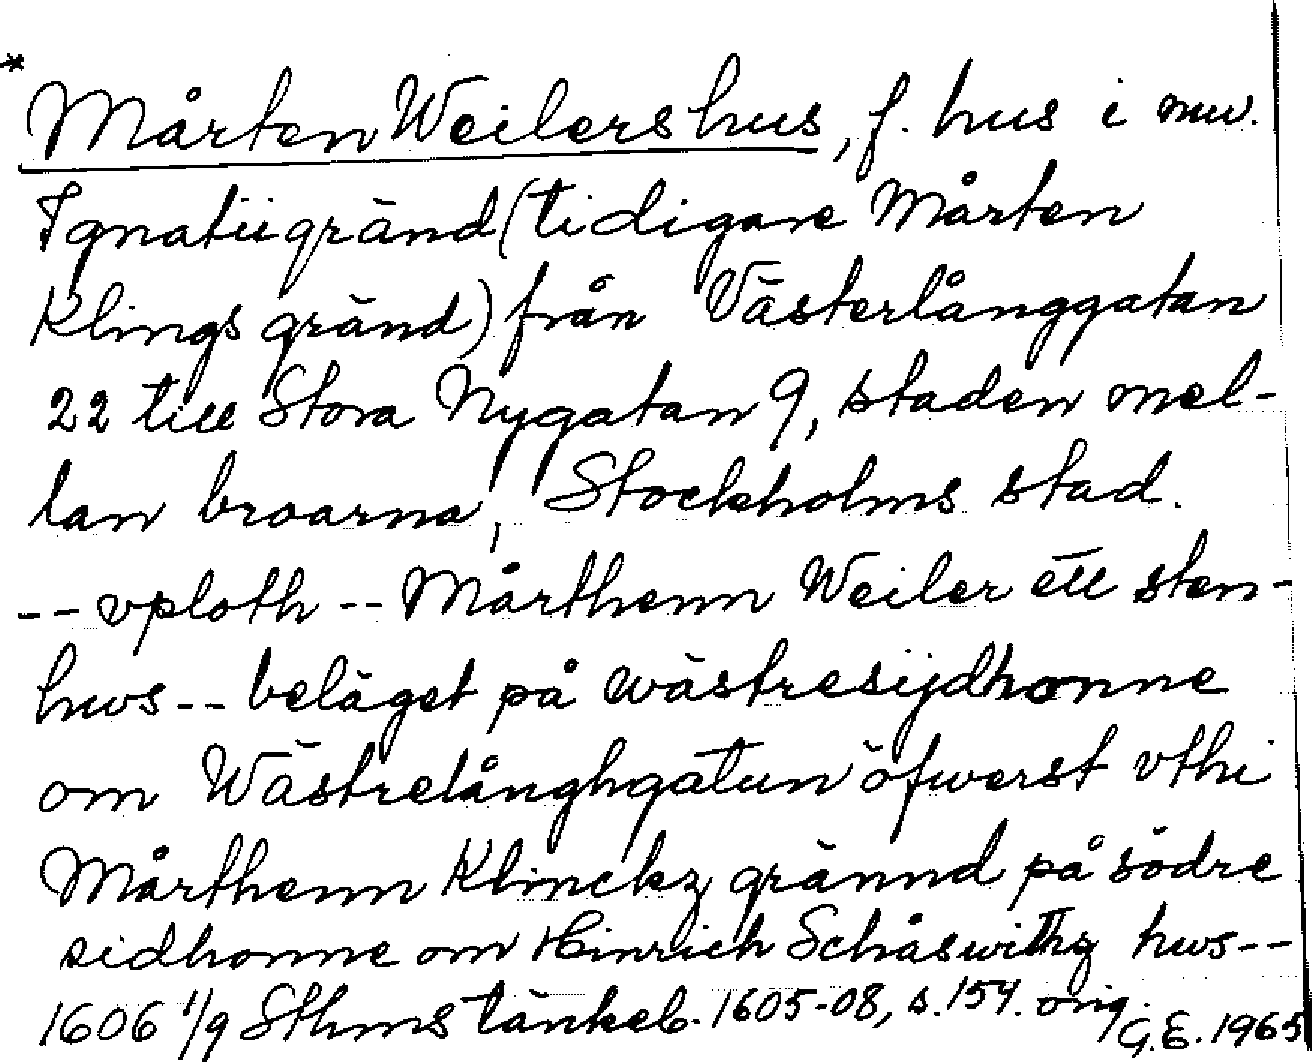 * Mårten Weilers hus, f. hus i nuv.
Ignatiigränd (tidigare Mårten
Klings gränd) från Västerlånggatan
22 till Stora Nygatan 9, staden mel-
lan broarna, Stockholms stad.
-- vploth -- Mårthenn Weiler ett sten-
hws -- beläget på wästresijdhonne
om Wästrelånghgatun öfwerst vthi
Mårthenn Klinckz grännd på södre
sidhonne om Hinrich Schåswithz hws --
1606 1/9 Sthms tänkeb. 1605-08, s. 154. orig.
G.E. 1965